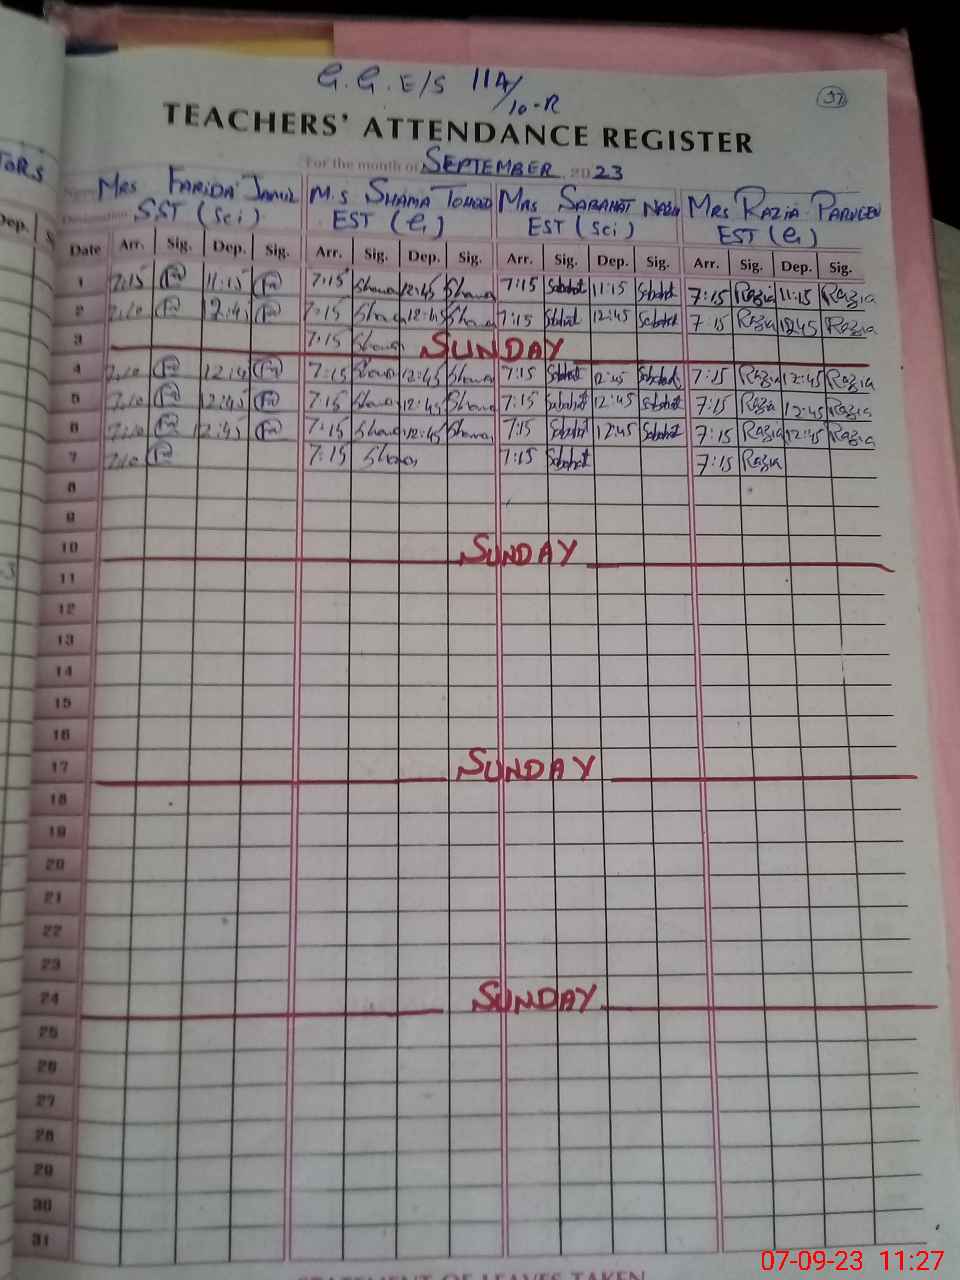 G.G.E/S 114/10-R
37
TEACHERS' ATTENDANCE REGISTER
For the month of SEPTEMBER 2023
TORS
Mrs FARIDA M.S SHAMA Mrs SABAHAT Mrs RAZIA PARVEEN
SST (Sci) EST (G) EST (Sci) EST (G)
Dep. S
Date Arr. Sig. Dep. Sig. Arr. Sig. Dep. Sig. Arr. Sig. Dep. Sig. Arr. Sig. Dep. Sig.
1 7:15 11:15 7:15 Shama 12:45 Shama 7:15 Sabahat 11:15 Sabahat 7:15 Razia 11:15 Razia
2 7:10 12:45 7:15 Shama 12:45 Shama 7:15 Sabahat 12:45 Sabahat 7:15 Razia 12:45 Razia
3 7:15 Shama SUNDAY
4 7:10 7:15 Shama 12:45 Shama 7:15 Sabahat 12:45 Sabahat 7:15 Razia 12:45 Razia
5 7:10 12:45 7:15 Shama 12:45 Shama 7:15 Sabahat 12:45 Sabahat 7:15 Razia 12:45 Razia
6 7:10 12:45 7:15 Shama 12:45 Shama 7:15 Sabahat 12:45 Sabahat 7:15 Razia 12:45 Razia
7 7:10 7:15 Shama 7:15 Sabahat 7:15 Razia
8
9
10 SUNDAY
11
12
13
14
15
16
17 SUNDAY
18
19
20
21
22
23
24 SUNDAY
25
26
27
28
29
30
31
STATEMENT OF LEAVES TAKEN
07-09-23 11:27